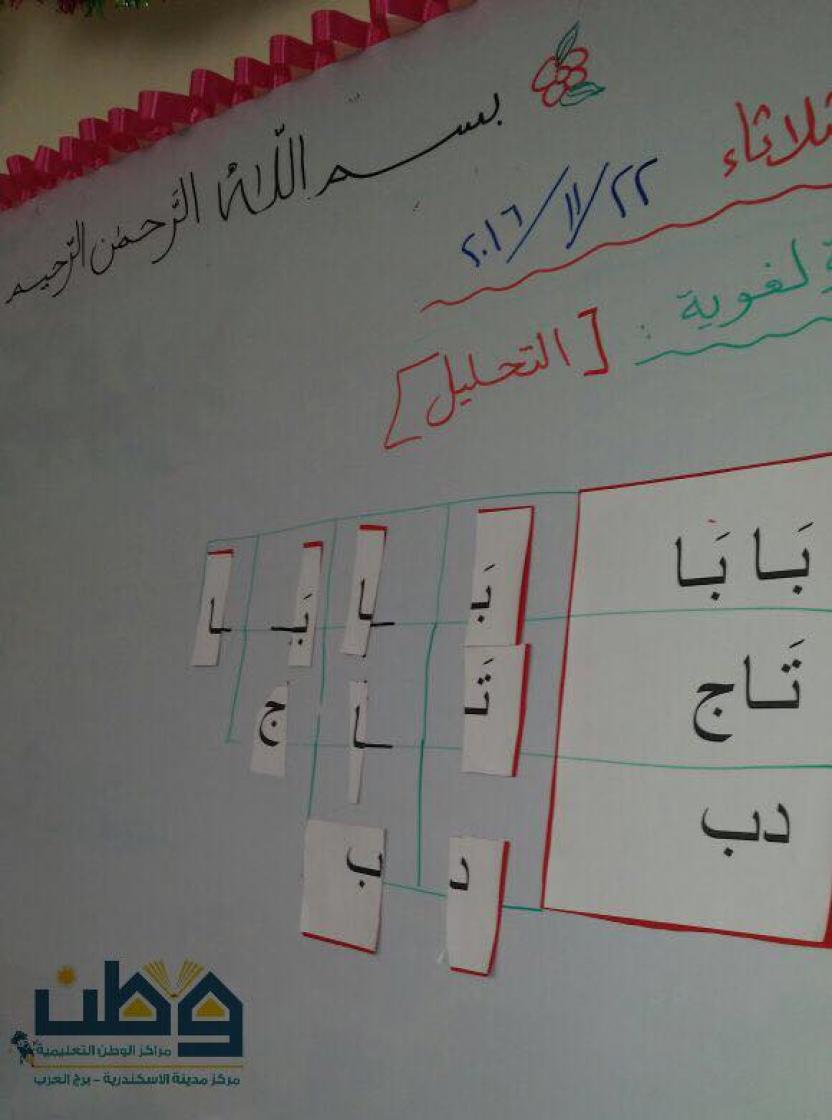 بسم اللّٰه الرَّحمٰن الرَّحيم
ثلاثاء
٢٢/١١/٢٠١٦
لغوية : [التحليل]
بَـابَـا بَـ ـا بَـ ـا
تَـاج تَـ ـا ج
دب د ب
وطن
مراكز الوطن التعليمية
مركز مدينة الاسكندرية - برج العرب